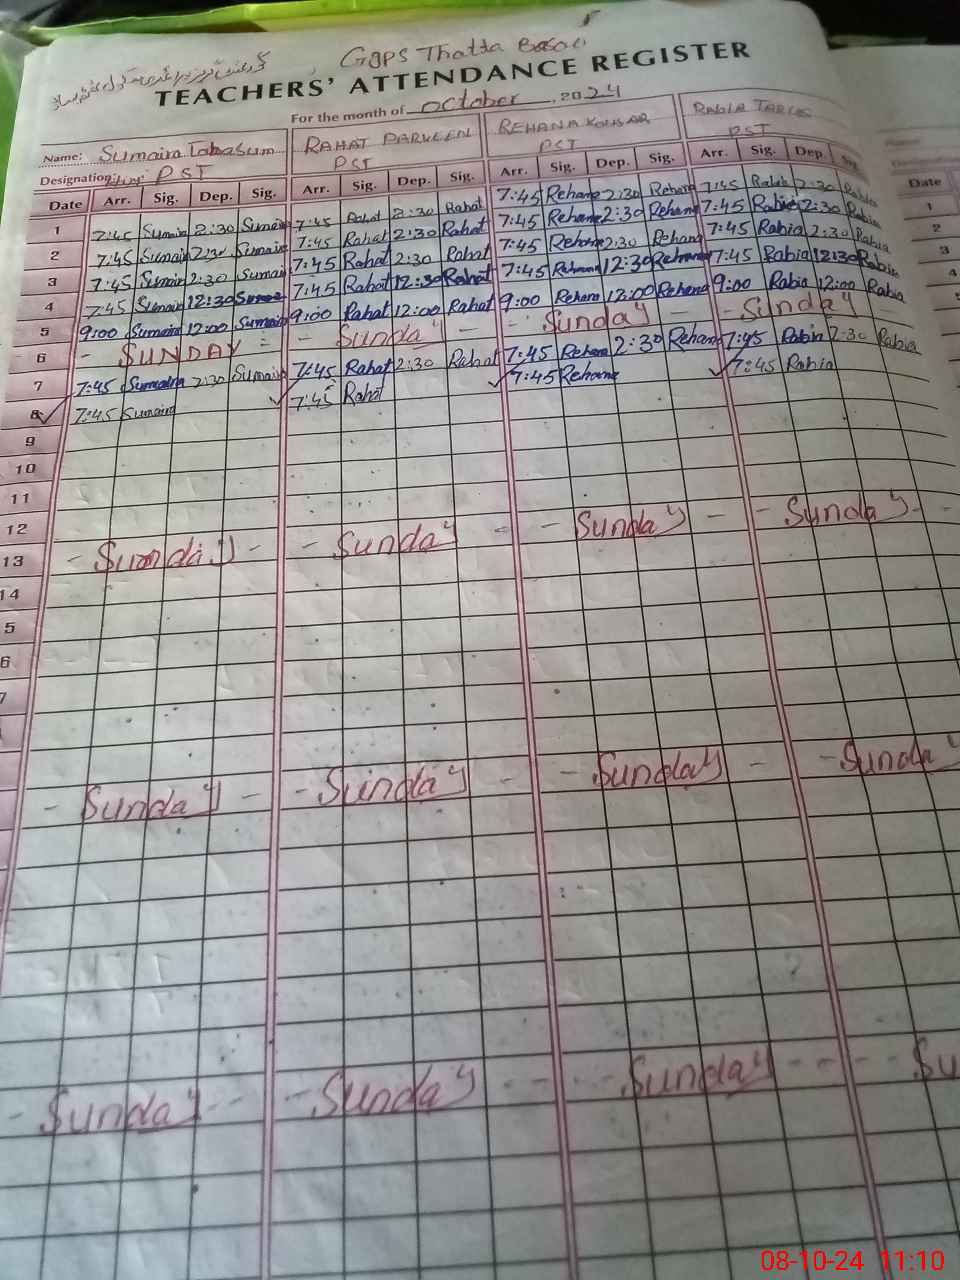 GGPS Thatta
TEACHERS' ATTENDANCE REGISTER
For the month of October, 2024
Name: Sumaira Tabasum RAHAT PARVEEN REHANA KOUSAR RABIA TARIQ
Designation: PST PST PST PST
Date Arr. Sig. Dep. Sig. Arr. Sig. Dep. Sig. Arr. Sig. Dep. Sig. Arr. Sig. Dep. Sig. Date
1 7:45 Sumaira 2:30 Sumaira 7:45 Rahat 2:30 Rahat 7:45 Rehana 2:30 Rehana 7:45 Rabia 2:30 Rabia 1
2 7:45 Sumaira 2:30 Sumaira 7:45 Rahat 2:30 Rahat 7:45 Rehana 2:30 Rehana 7:45 Rabia 2:30 Rabia 2
3 7:45 Sumaira 2:30 Sumaira 7:45 Rahat 2:30 Rahat 7:45 Rehana 2:30 Rehana 7:45 Rabia 2:30 Rabia 3
4 7:45 Sumaira 12:30 7:45 Rahat 12:30 Rahat 7:45 Rehana 12:30 Rehana 7:45 Rabia 12:30 Rabia 4
5 9:00 Sumaira 12:00 Sumaira 9:00 Rahat 12:00 Rahat 9:00 Rehana 12:00 Rehana 9:00 Rabia 12:00 Rabia 5
6 - SUNDAY - - Sunday - - Sunday - - Sunday - 6
7 7:45 Sumaira 2:30 Sumaira 7:45 Rahat 2:30 Rahat 7:45 Rehana 2:30 Rehana 7:45 Rabia 2:30 Rabia
8 7:45 Sumaira 7:45 Rahat 7:45 Rehana 7:45 Rabia
9
10
11
12
13 - Sunday - - Sunday - - Sunday - - Sunday -
14
5
6
7
- Sunday - - Sunday - - Sunday - - Sunday
- Sunday - - Sunday - - Sunday - - Su
08-10-24 11:10